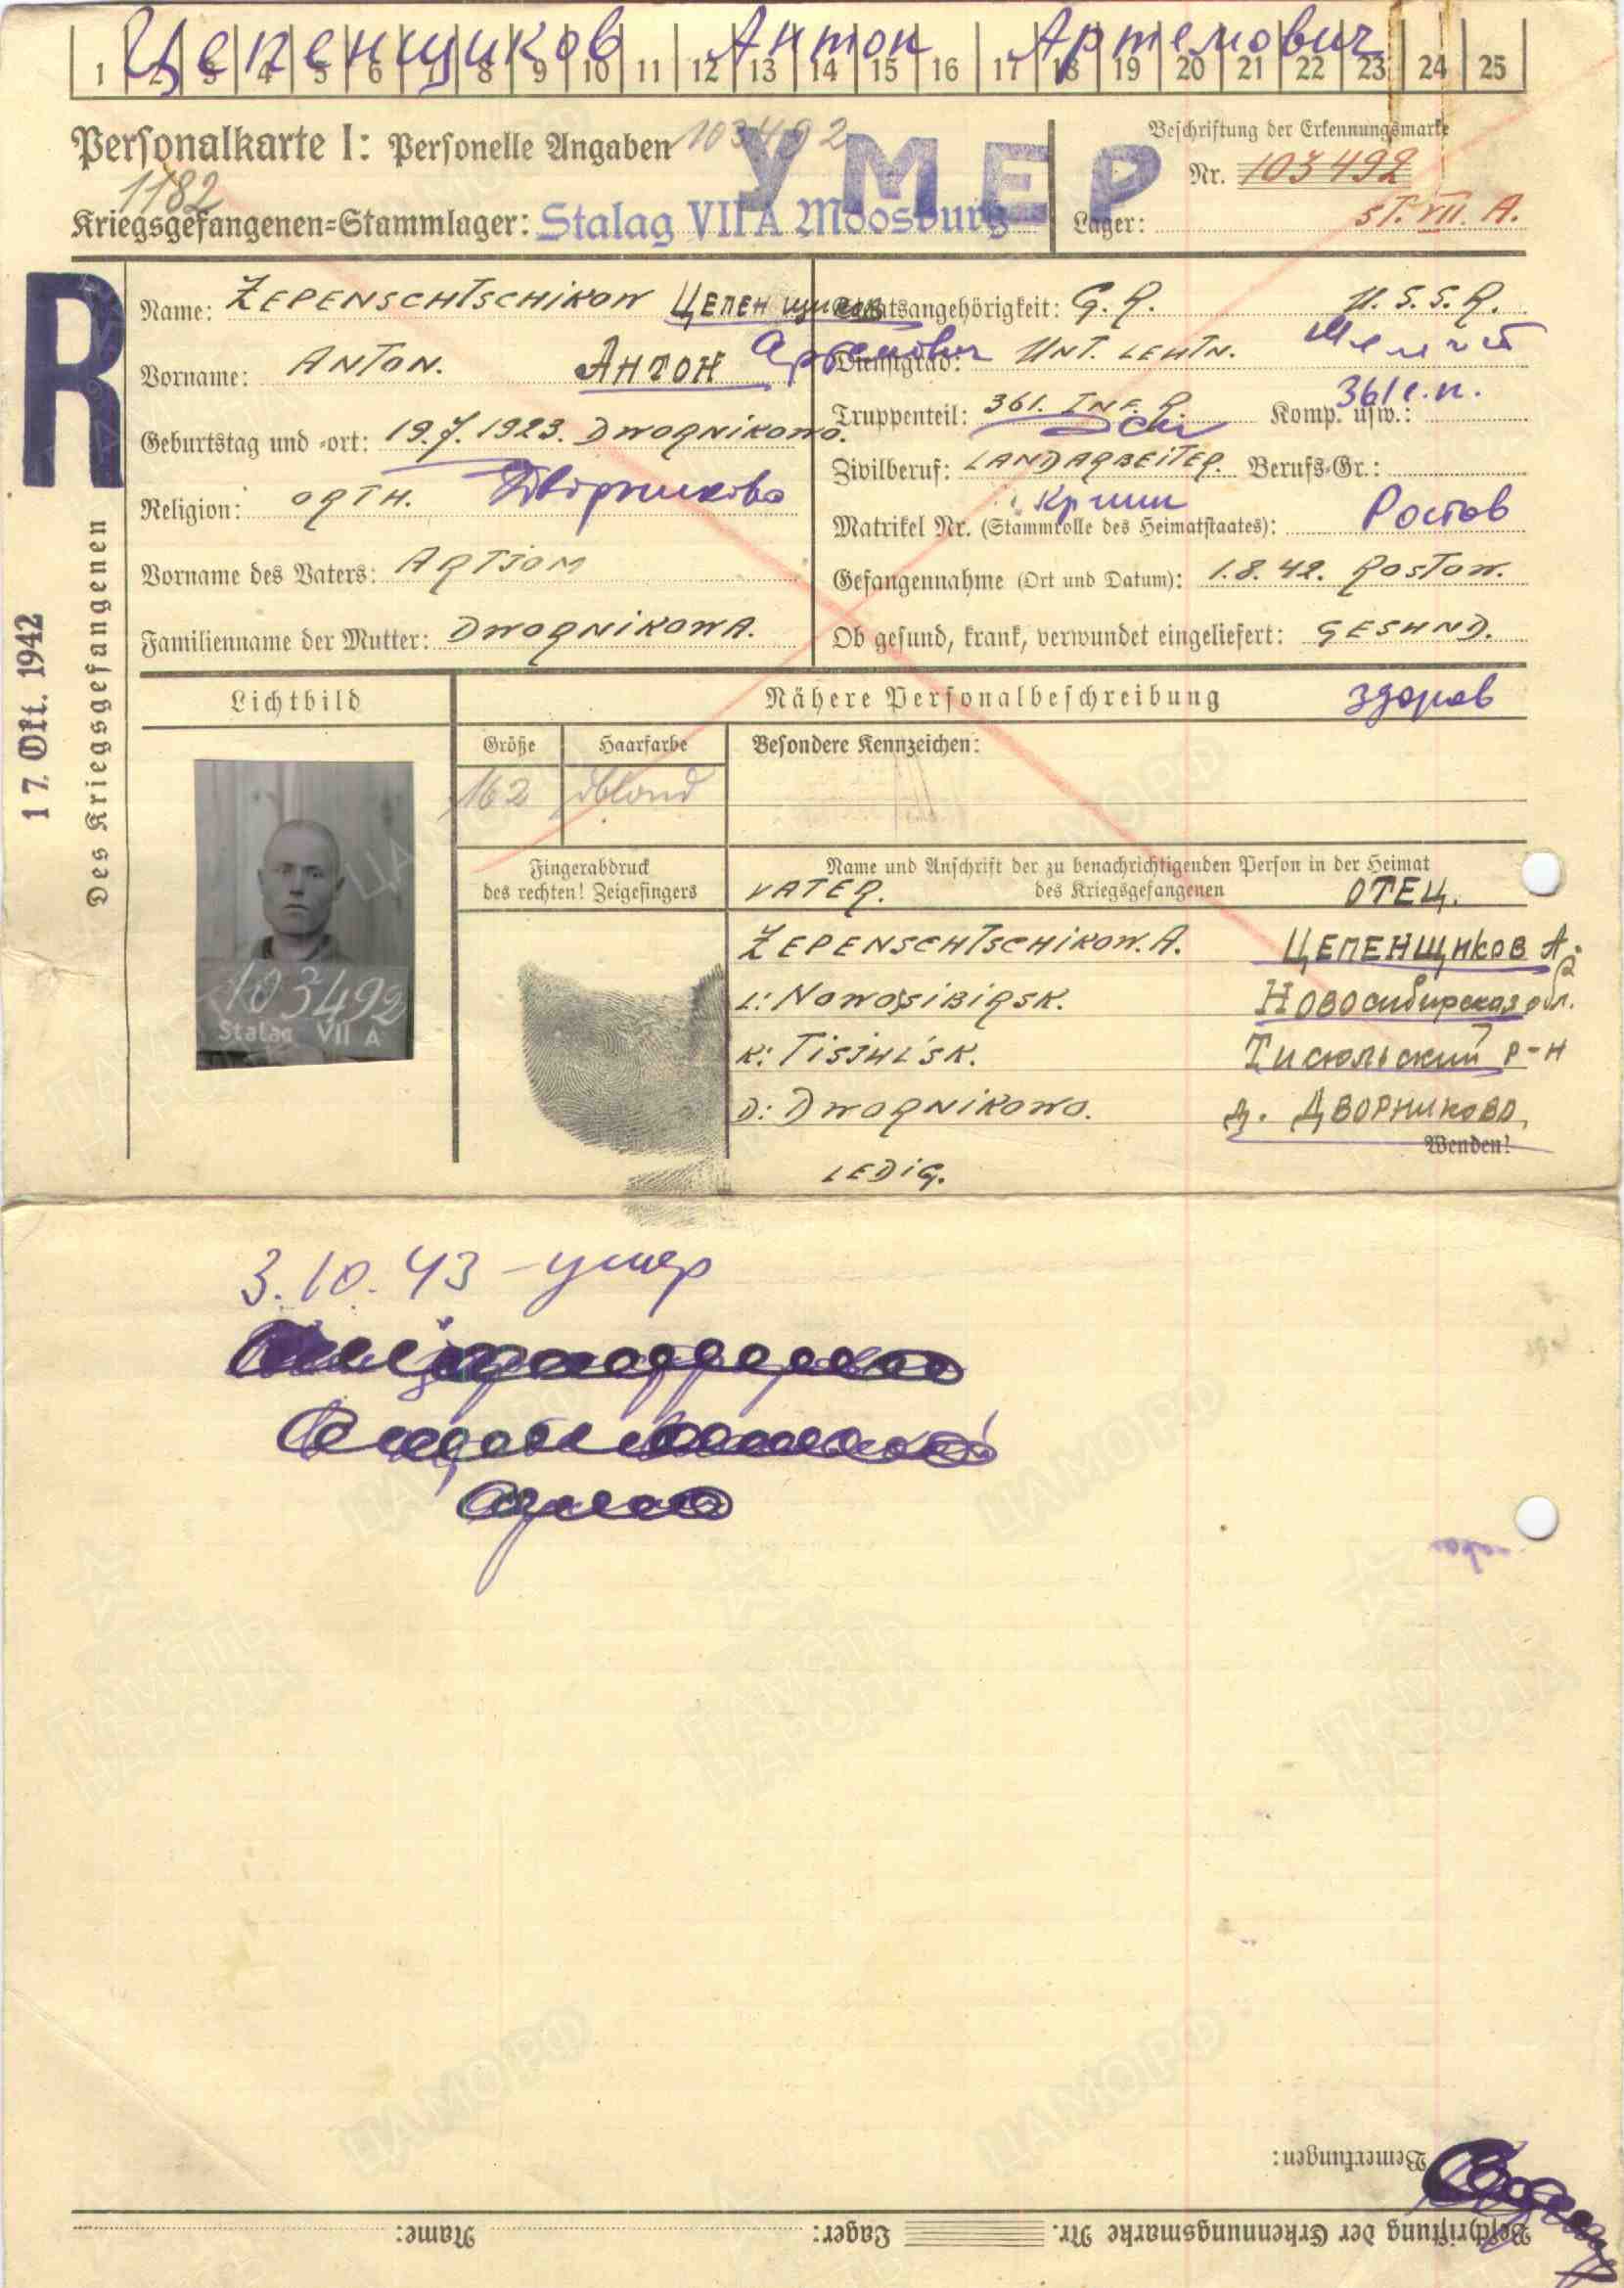 Цепенщиков Антон Артемович
1 2 3 4 5 6 7 8 9 10 11 12 13 14 15 16 17 18 19 20 21 22 23 24 25
Personalkarte I: Personelle Angaben 103492
УМЕР
Beschriftung der Erkennungsmarke
Nr. 103492
1182
Kriegsgefangenen-Stammlager: Stalag VII A Moosburg
Lager: ST. VII. A.
R
17. Okt. 1942
Des Kriegsgefangenen
Name: ZEPENSCHTSCHIKOW Цепенщиков
Vorname: ANTON. Антон Артемович
Geburtstag und -ort: 19.7.1923. DWORNIKOWO.
Religion: ORTH. Дворниково
Vorname des Vaters: ARTJOM
Familienname der Mutter: DWORNIKOWA.
Staatsangehörigkeit: G. R. U. S. S. R.
Dienstgrad: UNT. LEUTN.
Truppenteil: 361. INF. R. Komp. usw.: 361 с.п.
Zivilberuf: LANDARBEITER. Berufs-Gr.:
Matrikel Nr. (Stammrolle des Heimatstaates): Ростов
Gefangennahme (Ort und Datum): 1.8.42. ROSTOW.
Ob gesund, krank, verwundet eingeliefert: GESUND.
здоров
Lichtbild
Nähere Personalbeschreibung
Größe Haarfarbe Besondere Kennzeichen:
162 dblond
103492
Stalag VII A
Fingerabdruck
des rechten! Zeigefingers
Name und Anschrift der zu benachrichtigenden Person in der Heimat
des Kriegsgefangenen
VATER. ОТЕЦ.
ZEPENSCHTSCHIKOW. A. ЦЕПЕНЩИКОВ А.
L: NOWOSIBIRSK. Новосибирская обл.
K: TISJUL'SK. Тисюльский р-н
D: DWORNIKOWO. д. ДВОРНИКОВО
Wenden!
LEDIG.
3.10.43 - умер
Bemerkungen:
Beschriftung der Erkennungsmarke Nr. Lager: Name: